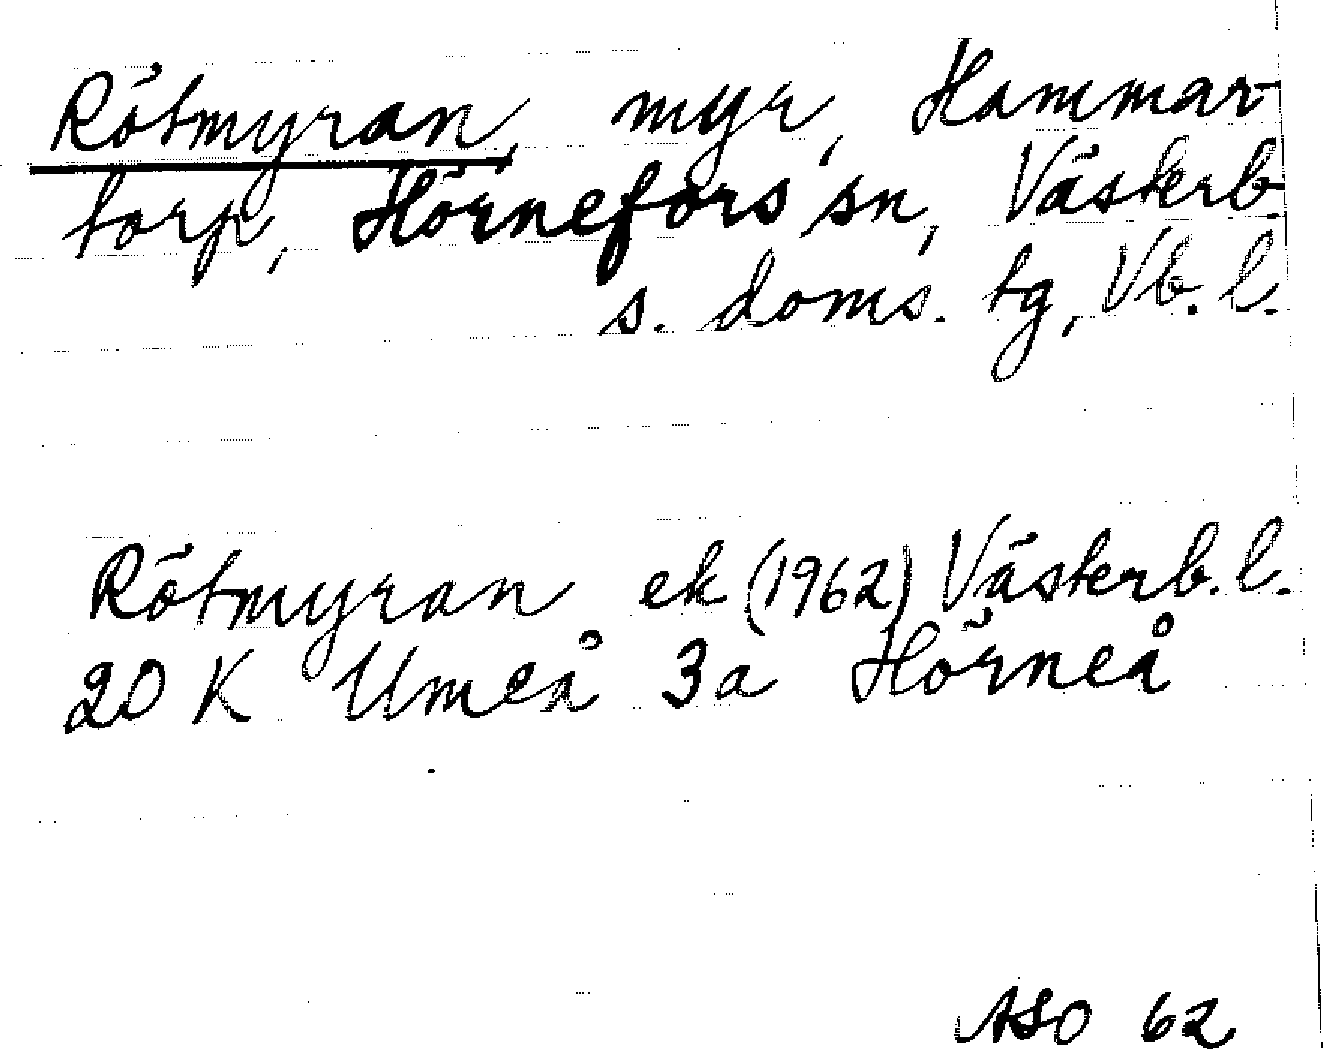 Rötmyran, myr, Hammar-
torp, Hörnefors sn, Västerb.
s. doms. tg, Vb. l.
Rötmyran ek (1962) Västerb. l.
20 K Umeå 3a Hörneå
ASO 62